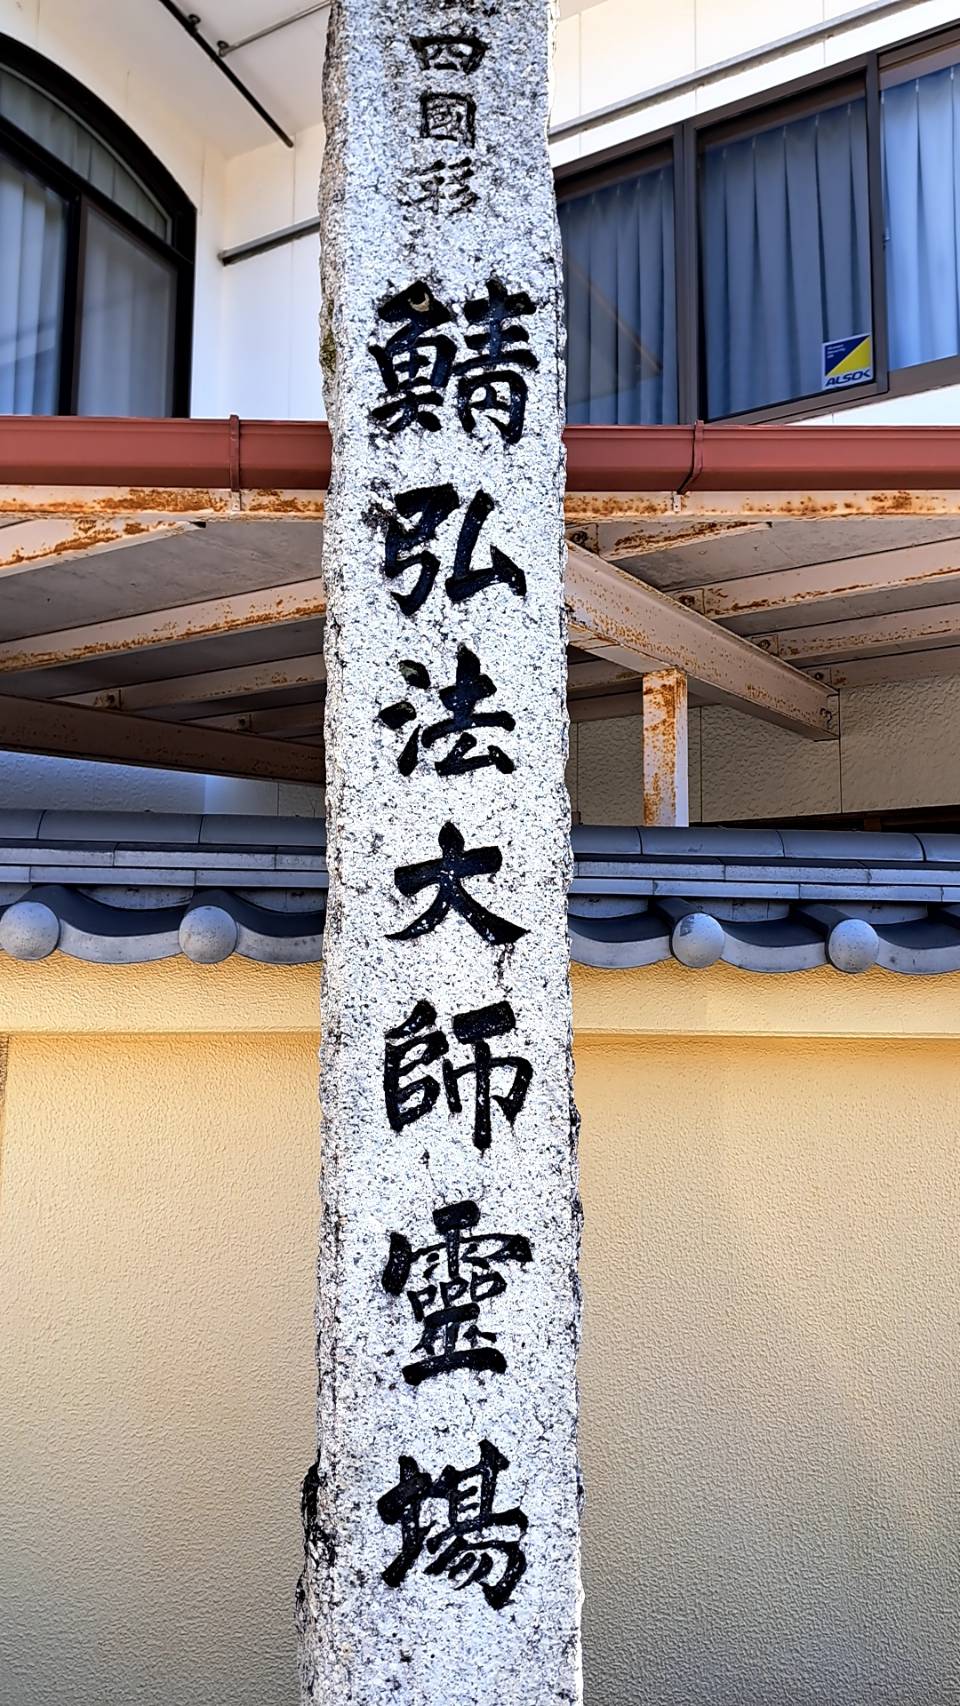 四國
鯖弘法大師靈場
ALSOK